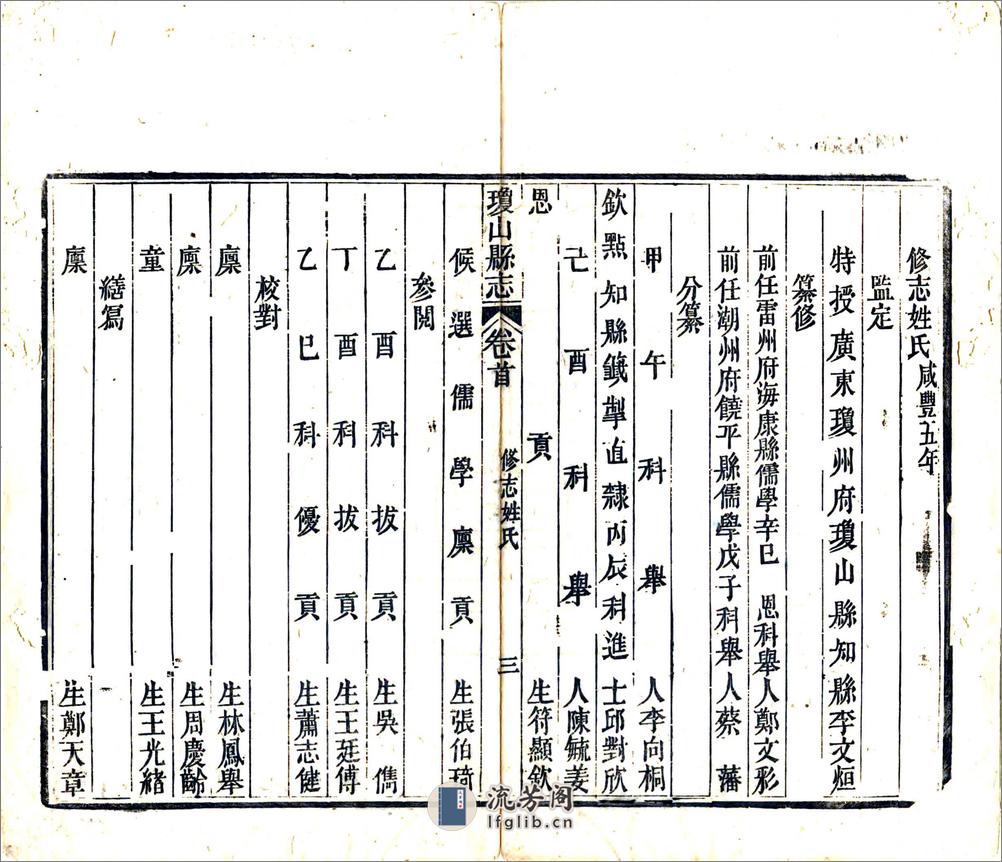 修志姓氏咸豐五年
監定
特授廣東瓊州府瓊山縣知縣李文烜
纂修
前任雷州府海康縣儒學辛巳 恩科舉人鄭文彩
前任潮州府饒平縣儒學戊子科舉人蔡 藩
分纂
甲午科舉人李向桐
欽點知縣籤掣直隸丙辰科進士邱對欣
己酉科舉人陳毓姜
恩貢生符顯欽
瓊山縣志 卷首 修志姓氏 三
候選儒學廩貢生張伯琦
參閱
乙酉科拔貢生吳 儁
丁酉科拔貢生王廷傅
乙巳科優貢生蕭志健
校對
廩生林鳳舉
廩生周慶齡
童生王光緒
繕寫
廩生鄭天章
流芳閣
lfglib.cn